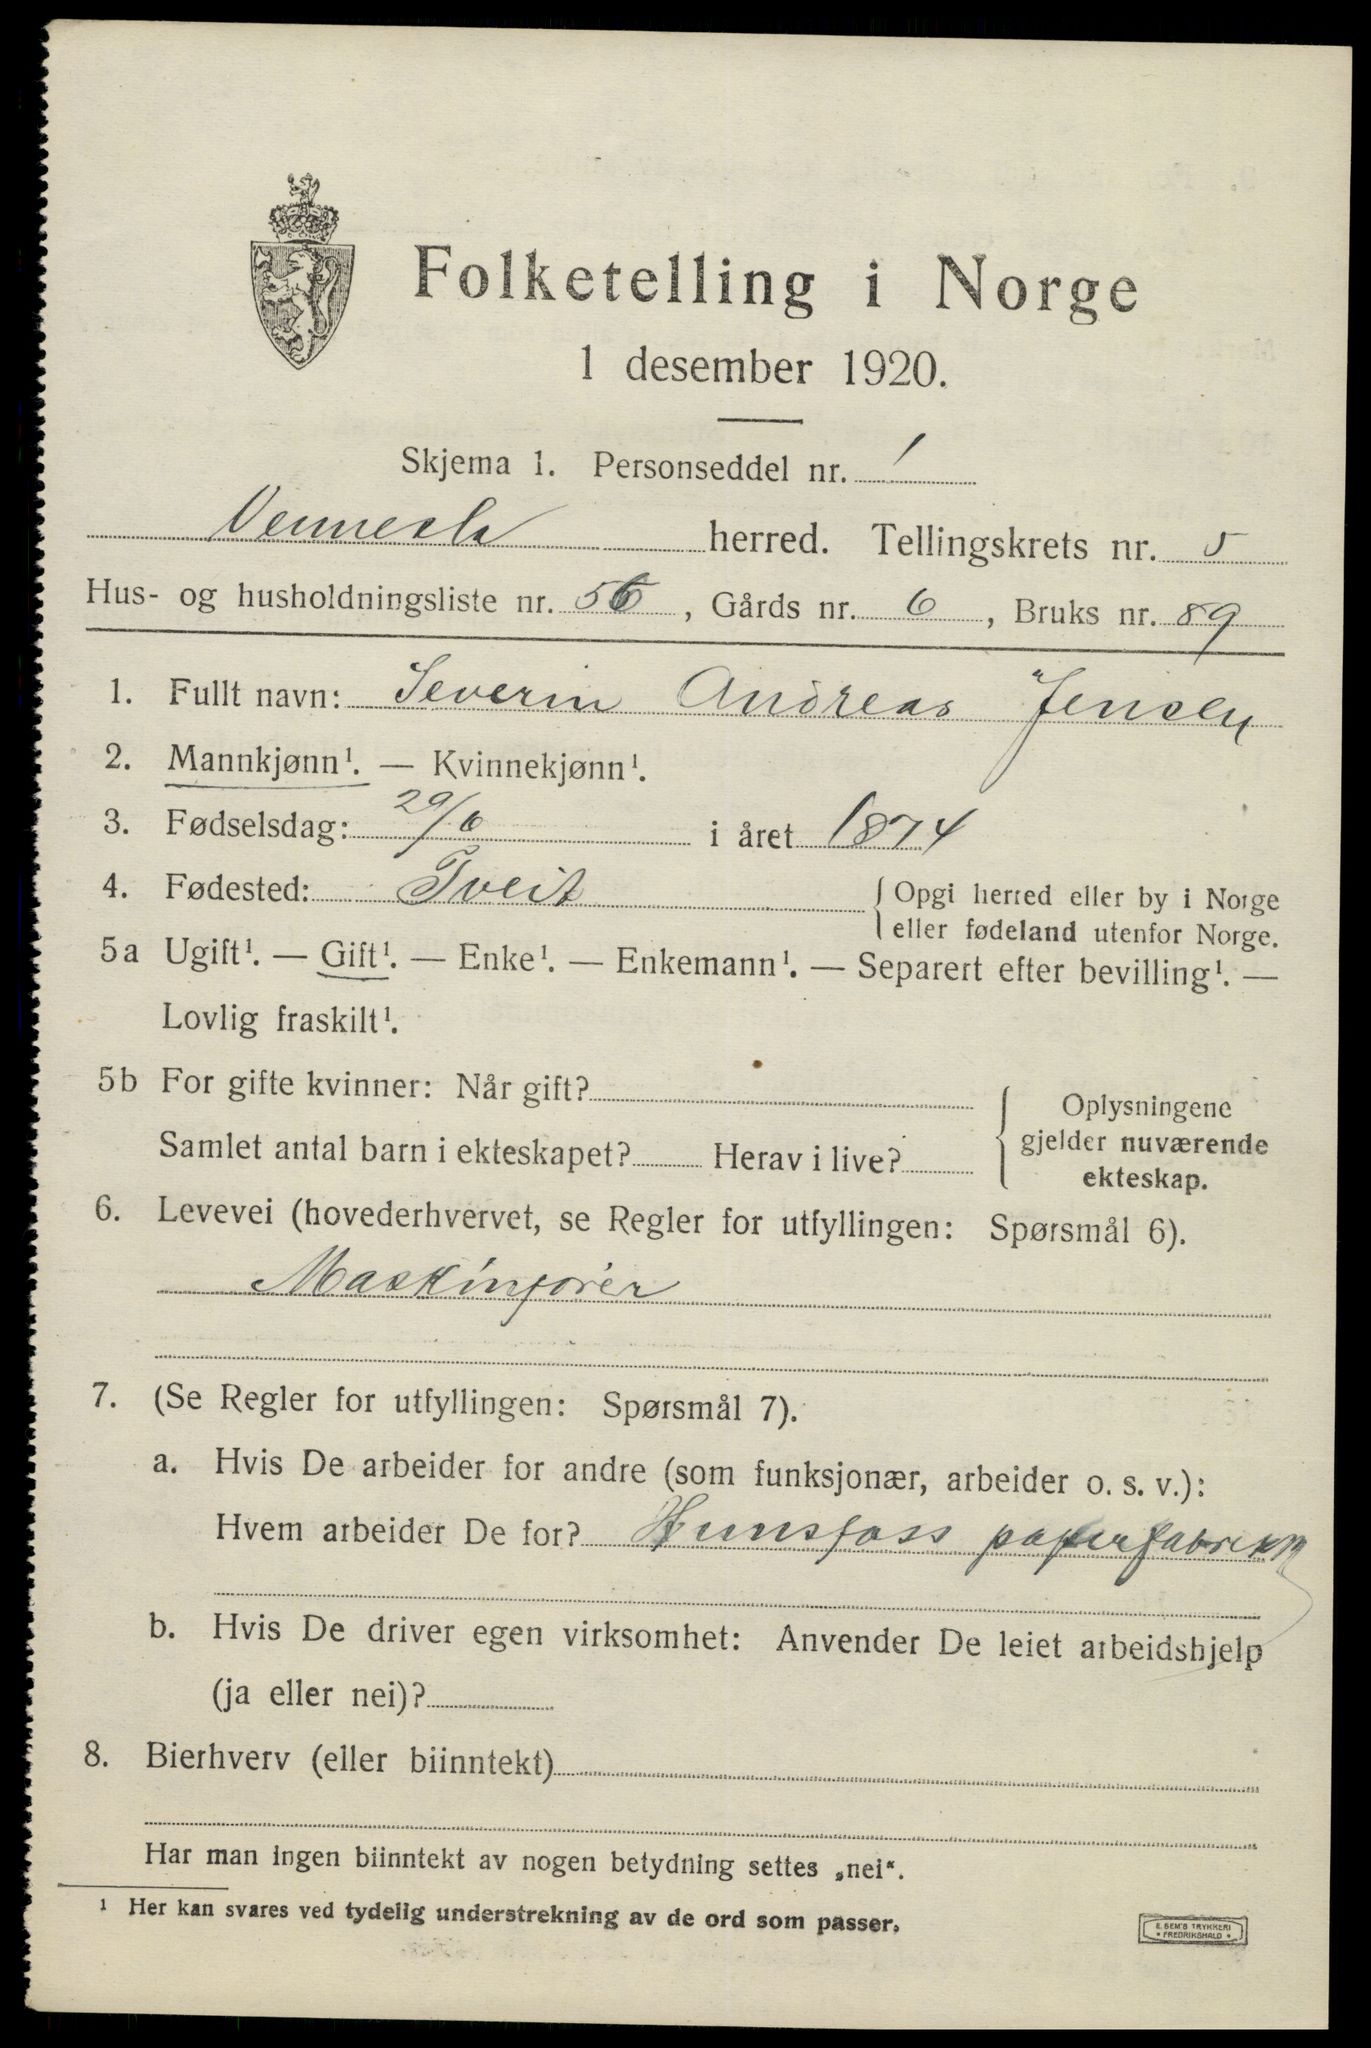 Folketelling i Norge
1 desember 1920.
Skjema 1. Personseddel nr. 1
Vennesla herred. Tellingskrets nr. 5
Hus- og husholdningsliste nr. 56, Gårds nr. 6, Bruks nr. 89
1. Fullt navn: Severin Andreas Jensen
2. Mannkjønn¹. — Kvinnekjønn¹.
3. Fødselsdag: 29/6 i året 1874
4. Fødested: Tveit {Opgi herred eller by i Norge
eller fødeland utenfor Norge.
5a Ugift¹. — Gift¹. — Enke¹. — Enkemann¹. — Separert efter bevilling¹. —
Lovlig fraskilt¹.
5b For gifte kvinner: Når gift?
Samlet antal barn i ekteskapet? Herav i live?
{Oplysningene
gjelder nuværende
ekteskap.
6. Levevei (hovederhvervet, se Regler for utfyllingen: Spørsmål 6).
Maskinfører
7. (Se Regler for utfyllingen: Spørsmål 7).
a. Hvis De arbeider for andre (som funksjonær, arbeider o. s. v.):
Hvem arbeider De for? Hunsfoss papirfabrikk
b. Hvis De driver egen virksomhet: Anvender De leiet arbeidshjelp
(ja eller nei)?
8. Bierhverv (eller biinntekt)
Har man ingen biinntekt av nogen betydning settes „nei“.
¹ Her kan svares ved tydelig understrekning av de ord som passer.
E. SEM'S TRYKKERI
* FREDRIKSHALD *